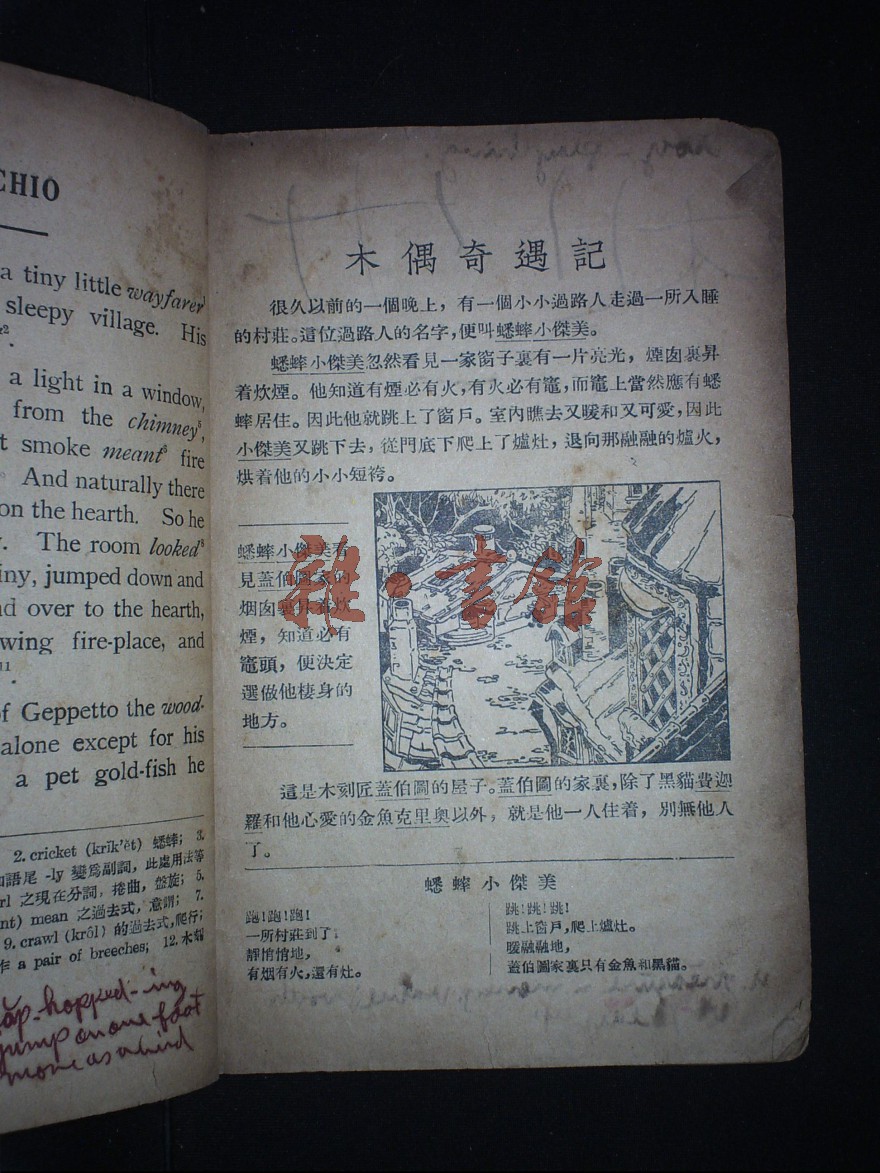 CHIO
a tiny little wayfarer
sleepy village. His
a light in a window,
from the chimney⁵,
t smoke meant⁸ fire
And naturally there
on the hearth. So he
The room looked⁸
iny, jumped down and
nd over to the hearth,
wing fire-place, and
11
of Geppetto the wood-
alone except for his
a pet gold-fish he
2. cricket (krĭk'ĕt) 蟋蟀; 3.
語尾 -ly 變爲副詞, 此處用法等
rl 之現在分詞, 捲曲, 盤旋; 5.
nt) mean 之過去式, 意謂; 7.
9. crawl (krôl) 的過去式, 爬行;
作 a pair of breeches; 12.
hopped-ing
jump on one foot
move as a bird
木偶奇遇記
很久以前的一個晚上，有一個小小過路人走過一所入睡
的村莊。這位過路人的名字，便叫蟋蟀小傑美。
蟋蟀小傑美忽然看見一家窗子裏有一片亮光，煙囪裏昇
着炊煙。他知道有煙必有火，有火必有竈，而竈上當然應有蟋
蟀居住。因此他就跳上了窗戶。室內瞧去又暖和又可愛，因此
小傑美又跳下去，從門底下爬上了爐灶，退向那融融的爐火，
烘着他的小小短袴。
蟋蟀小傑美看
見蓋伯圖家的
烟囪裏昇着炊
煙，知道必有
竈頭，便決定
選做他棲身的
地方。
雜·書館
這是木刻匠蓋伯圖的屋子。蓋伯圖的家裏，除了黑貓費迦
羅和他心愛的金魚克里奧以外，就是他一人住着，別無他人
了。
蟋蟀小傑美
跑！跑！跑！
一所村莊到了，
靜悄悄地，
有烟有火，還有灶。
跳！跳！跳！
跳上窗戶，爬上爐灶。
暖融融地，
蓋伯圖家裏只有金魚和黑貓。